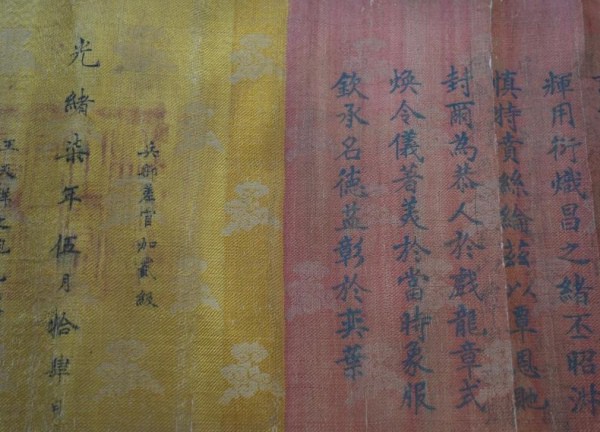 輝用衍熾昌之緒丕昭淑
慎特賁絲綸茲以覃恩貤
封爾為恭人於戲龍章式
煥令儀著美於當時象服
欽承名德益彰於奕葉
兵部差官加貳級
光緒柒年伍月拾肆日